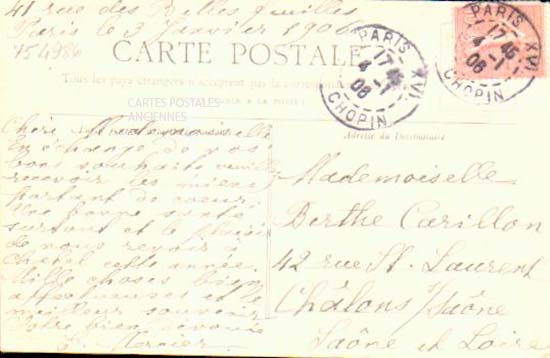 41 rue des Belles feuilles
Paris le 3 Janvier 1908
754986
CARTE POSTALE
Tous les pays étrangers n'acceptent pas la correspondance
CARTES POSTALES
ANCIENNES
PARIS XVI
17 45
4 -1
08
CHOPIN
PARIS XVI
17 45
4 -1
08
CHOPIN
Adresse du Destinataire
Chère Mademoiselle
En échange de vos
bons souhaits veuillez
recevoir les miens
partant du coeur:
Une bonne santé
surtout et le plaisir
de nous revoir à
Chatel cette année.
Mille choses bien
affectueuses et le
meilleur souvenir
Votre bien dévouée
Mademoiselle
Berthe Carillon
42 rue St. Laurent
Châlons s/Saône
Saône et Loire